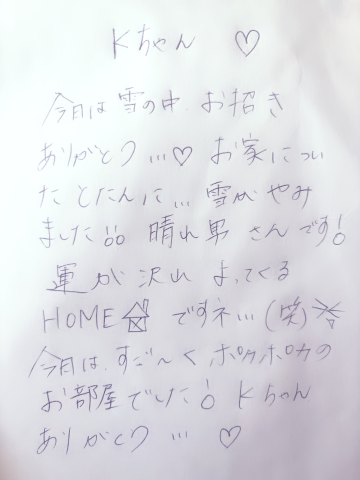 Kちゃん ♡
今日は雪の中、お招き
ありがとう…♡ お家につい
たとたんに… 雪がやみ
ました!! 晴れ男さんです!
運が沢山よってくる
HOME🏠ですネ…(笑)
今日は、すご〜くポカポカの
お部屋でした! Kちゃん
ありがとう… ♡